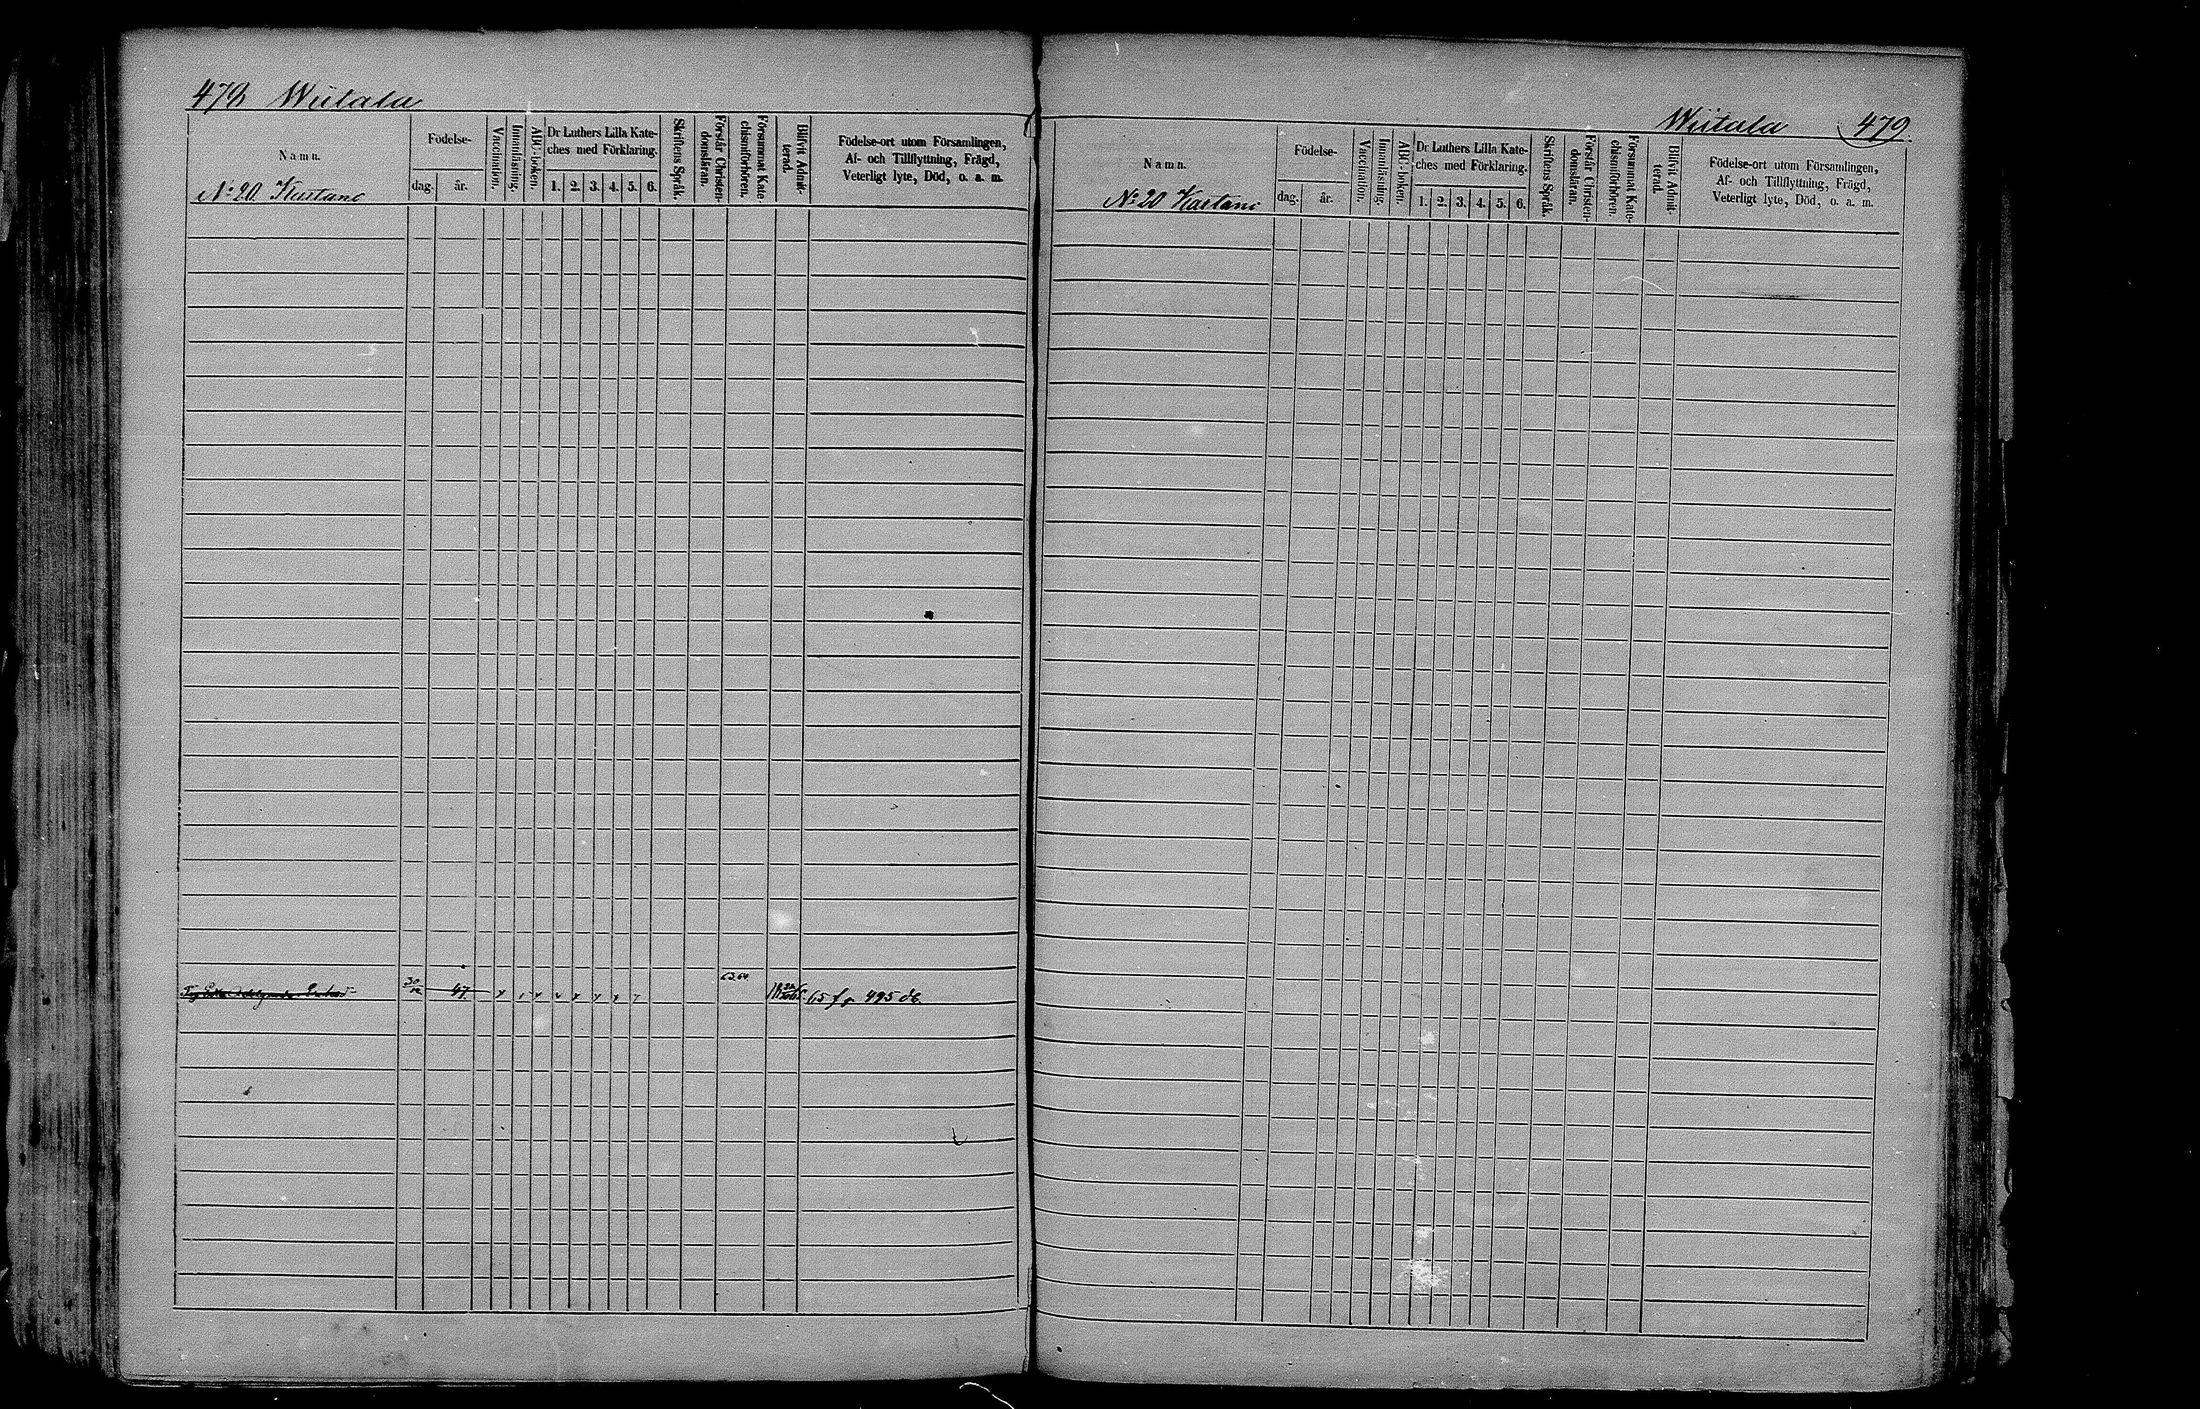 478 Wiitala
Namn.
Födelse-
dag. år.
Vaccination.
Innanläsning.
ABC-boken.
Dr Luthers Lilla Kate-
ches med Förklaring.
1. 2. 3. 4. 5. 6.
Skriftens Språk.
Förstår Christen-
domsläran.
Försummat Kate
chismiförhören.
Blifvit Admit-
terad.
Födelse-ort utom Församlingen,
Af- och Tillflyttning, Frägd,
Veterligt lyte, Död, o. a. m.
No 20 Kaitano
30/12 47 63.64 65 f. p. 495
Wiitala 479.
Namn.
Födelse-
dag. år.
Vaccination.
Innanläsning.
ABC-boken.
Dr Luthers Lilla Kate-
ches med Förklaring.
1. 2. 3. 4. 5. 6.
Skriftens Språk.
Förstår Christen-
domsläran.
Försummat Kate-
chismiförhören.
Blifvit Admit-
terad.
Födelse-ort utom Församlingen,
Af- och Tillflyttning, Frägd,
Veterligt lyte, Död, o. a. m.
No 20 Kaitano